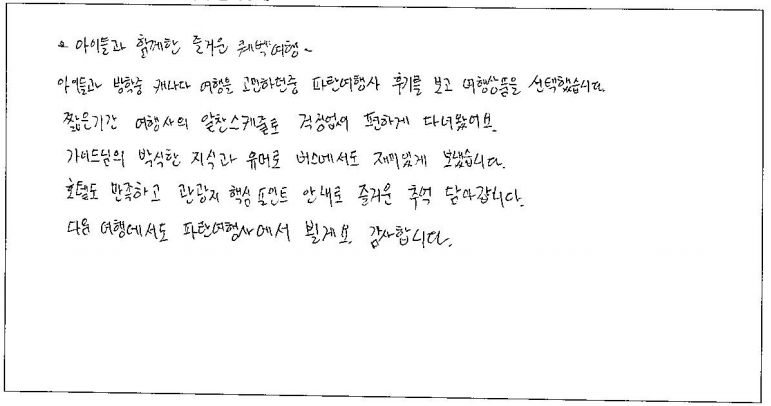 ~ 아이들과 함께한 즐거운 퀘벡여행 ~
아이들과 방학중 캐나다 여행을 고민하던중 파란여행사 후기를 보고 여행상품을 선택했습니다.
짧은기간 여행사의 알찬스케줄로 걱정없이 편하게 다녀왔어요.
가이드님의 박식한 지식과 유머로 버스에서도 재미있게 보냈습니다.
호텔도 만족하고 관광지 핵심 포인트 안내로 즐거운 추억 담아갑니다.
다음 여행에서도 파란여행사에서 뵐게요. 감사합니다.